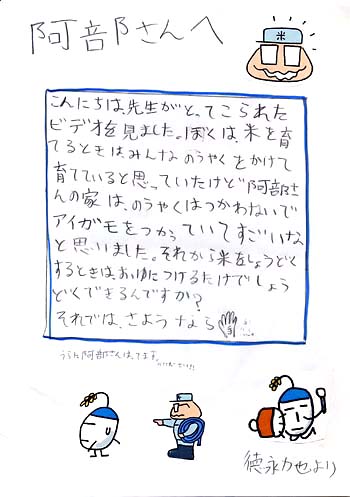 阿部さんへ
米
こんにちは、先生がとってこられた
ビデオを見ました。ぼくは、米を育
てるときは、みんなのうやくをかけて
育てていると思っていたけど阿部さ
んの家は、のうやくはつかわないで
アイガモをつかっていてすごいな
と思いました。それから米をしょうどく
するときはおゆにつけるだけでしょう
どくできるんですか?
それでは、さようなら
うらに阿部さんは、てます。
徳永力也より